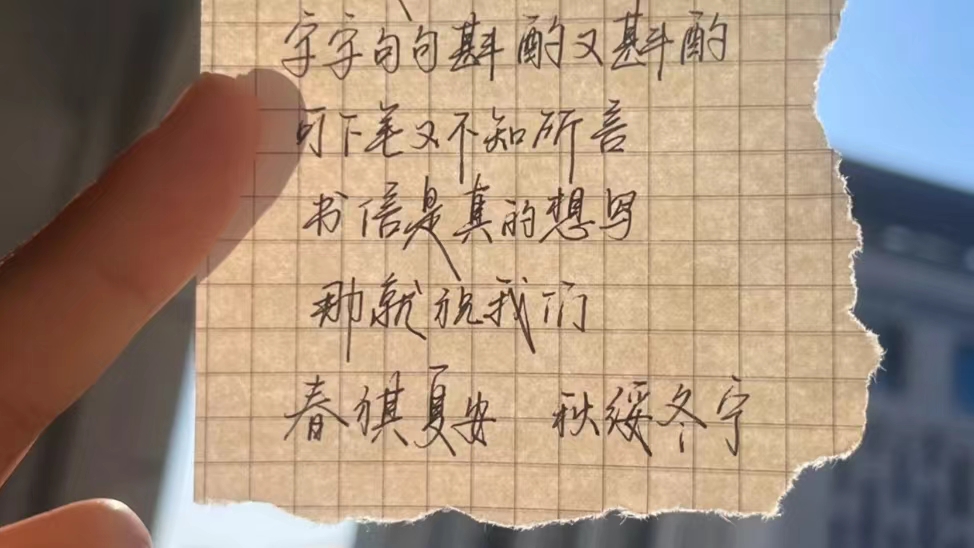 字字句句斟酌又斟酌
可下笔又不知所言
书信是真的想写
那就祝我们
春祺夏安 秋绥冬宁